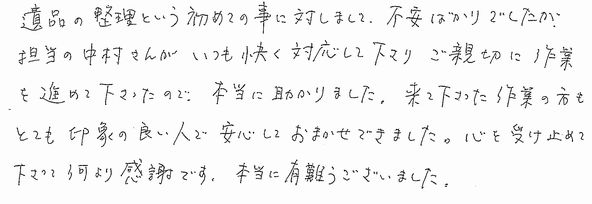 遺品の整理という初めての事に対しまして、不安ばかりでしたが、
担当の中村さんがいつも快く対応して下さり ご親切に作業
を進めて下さったので、本当に助かりました。来て下さった作業の方も
とても印象の良い人で安心しておまかせできました。心を受け止めて
下さって何より感謝です。本当に有難うございました。